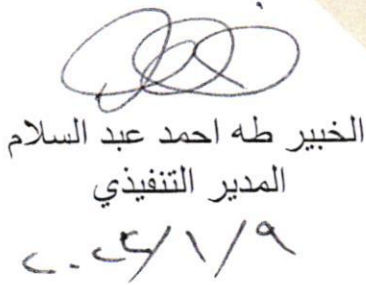 الخبير طه احمد عبد السلام
المدير التنفيذي
٢٠٢٤/١/٩